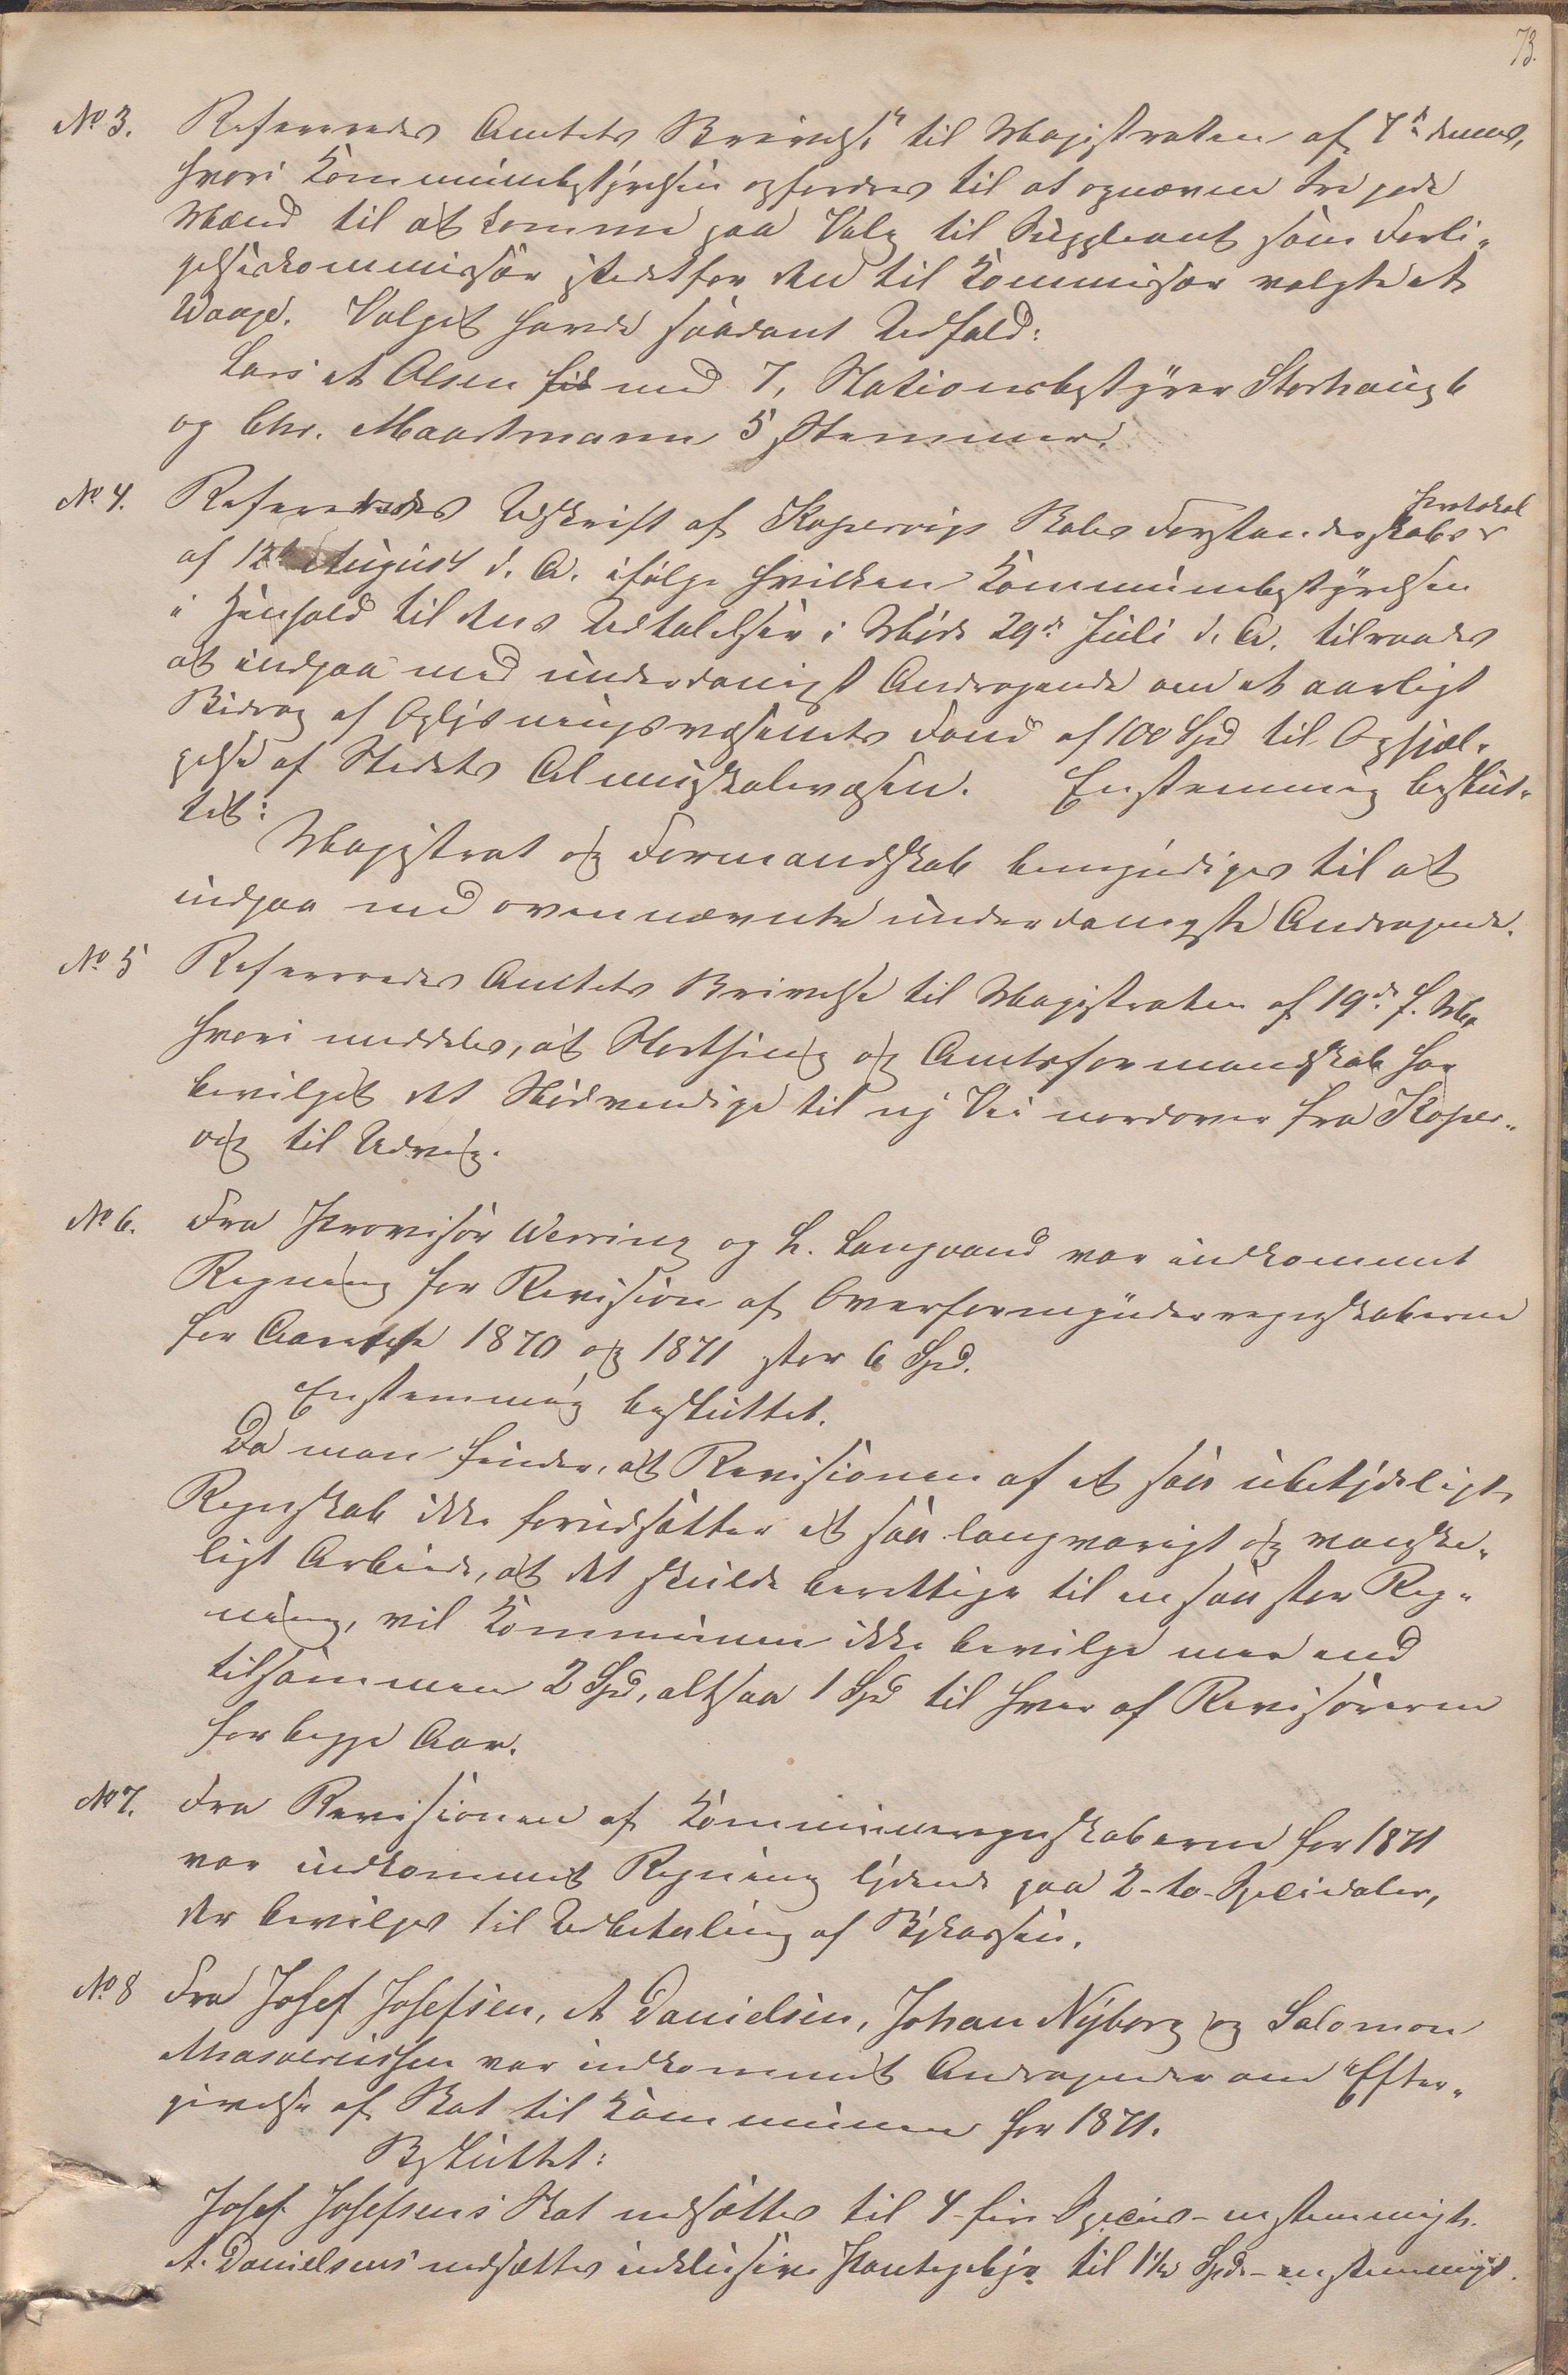 73.
No 3. Refereredes Amtets Skrivelse til Magistraten af 4de dennes,
hvori Kommunebestyrelsen opfordres til at opnævne tre gode
Mænd til at komme paa Valg til Suppleant som Forli-
gelseskommissær istedetfor den til Kommissær valgte A
Waage. Valget havde saadant Udfald:
Lars A Olsen fik med 7, Stationsbestyrer Storhaug 6
og Chr. Maartmann 5 Stemmer.
No 4. Refereredes Udskrift af Kopervigs Skoles Forstanderskabs Protokol
af 12te August d. A. ifølge hvilken Kommunebestyrelsen
i Henhold til dens Udtalelser i Møde 29de Juli d. A. tilraades
at indgaa med underdanigst Andragende om et aarligt
Bidrag af Oplysningsvæsenets Fond af 100 Spd til Ophjæl-
pelse af Stedets Almueskolevæsen. Enstemmig beslut-
tet:
Magistrat og Formandskab bemyndiges til at
indgaa med ovennævnte underdanigste Andragende.
No 5 Refereredes Amtets Skrivelse til Magistraten af 19de f. M.
hvori meddeles, at Storthing og Amtsformandskab har
bevilget det Nødvendige til ny Vei nordover fra Koper-
vig til Udvig.
No 6. Fra Provisor Werring og L. Langaand var indkommet
Regning for Revision af Overformynderregnskaberne
for Aarene 1870 og 1871 stor 6 Spd.
Enstemmig besluttet.
Da man finder, at Revisionen af et saa ubetydeligt
Regnskab ikke forudsætter et saa langvarigt og vanske-
ligt Arbeide, at det skulde berettige til en saa stor Reg-
ning, vil Kommunen ikke bevilge mer end
tilsammen 2 Spd, altsaa 1 Spd til hver af Revisorerne
for begge Aar.
No 7. Fra Revisionen af Kommuneregnskaberne for 1871
var indkommet Regning lydende paa 2-to-Speciedaler,
der bevilges til Udbetaling af Bykassen.
No 8 Fra Josef Josefsen, A Danielsen, Johan Nyborg og Salomon
Asseriussen var indkommet Andragender om Efter-
givelse af Skat til Kommunen for 1871.
Besluttet:
Josef Josefsens Skat nedsættes til 4-fire Species-enstemmigt.
A. Danielsens nedsættes inklusive Pantegebyr til 1½ Spd-enstemmigt.